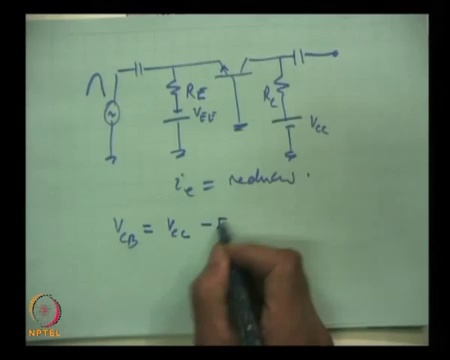 RE
VEE
RL
VCC
ie = reduces.
VCB = VCC -
NPTEL